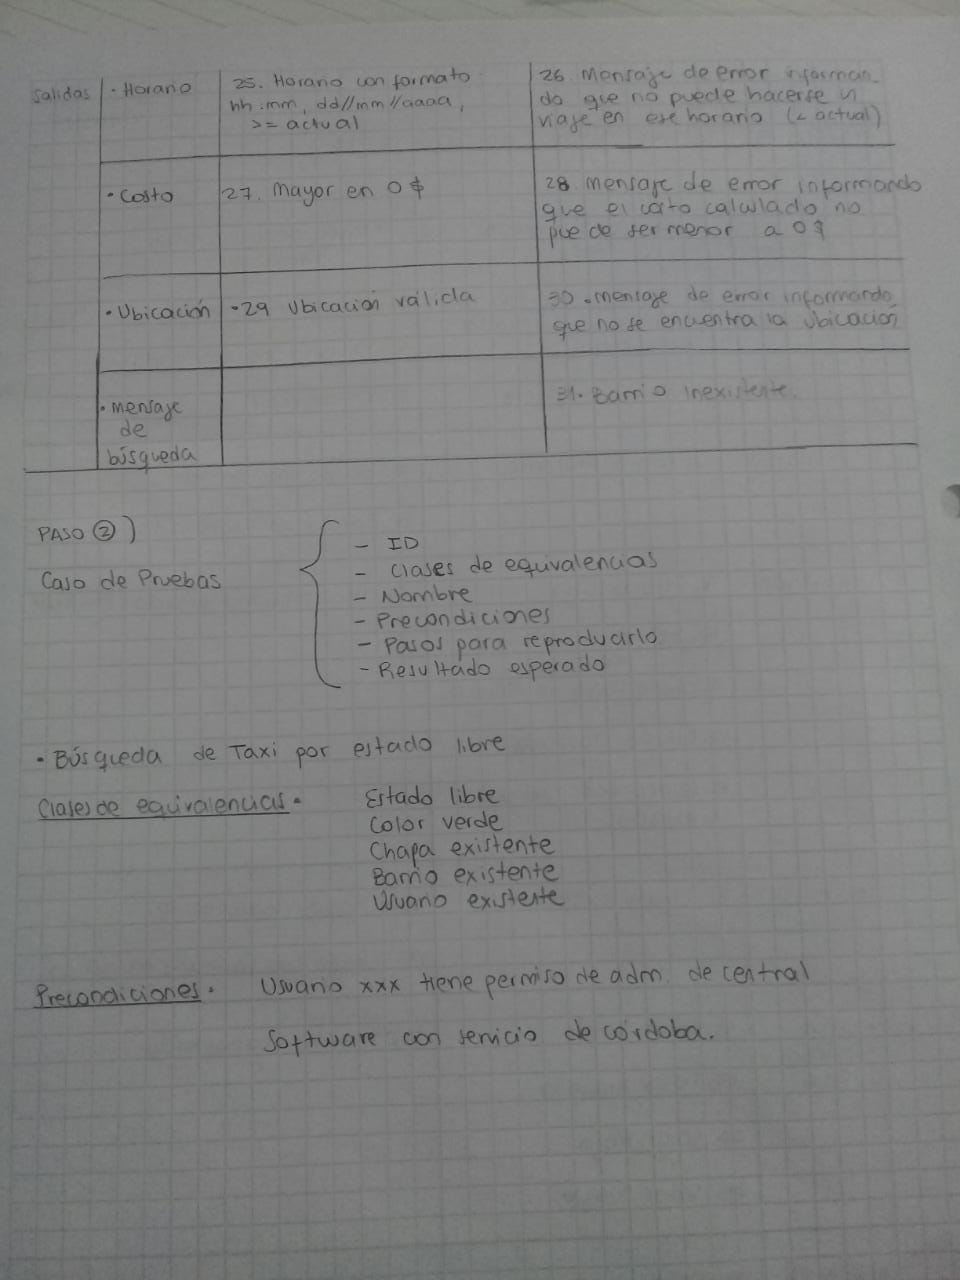 Salidas
· Horario
25. Horario con formato
hh:mm, dd//mm//aaaa,
>= actual
26. Mensaje de error informan_
do que no puede hacerse un
viaje en ese horario (< actual)
· Costo
27. Mayor en 0 $
28 mensaje de error informando
que el costo calculado no
puede ser menor a 0 $
· Ubicación
·29 Ubicación válida
30. mensaje de error informando
que no se encuentra la ubicación
· mensaje
de
búsqueda
31. Barrio inexistente.
PASO ② )
Caso de Pruebas
- ID
- Clases de equivalencias
- Nombre
- Precondiciones
- Pasos para reproducirlo
- Resultado esperado
· Búsqueda de Taxi por estado libre
Clases de equivalencias. Estado libre
Color verde
Chapa existente
Barrio existente
Usuario existente
Precondiciones. Usuario xxx tiene permiso de adm. de central
Software con servicio de córdoba.